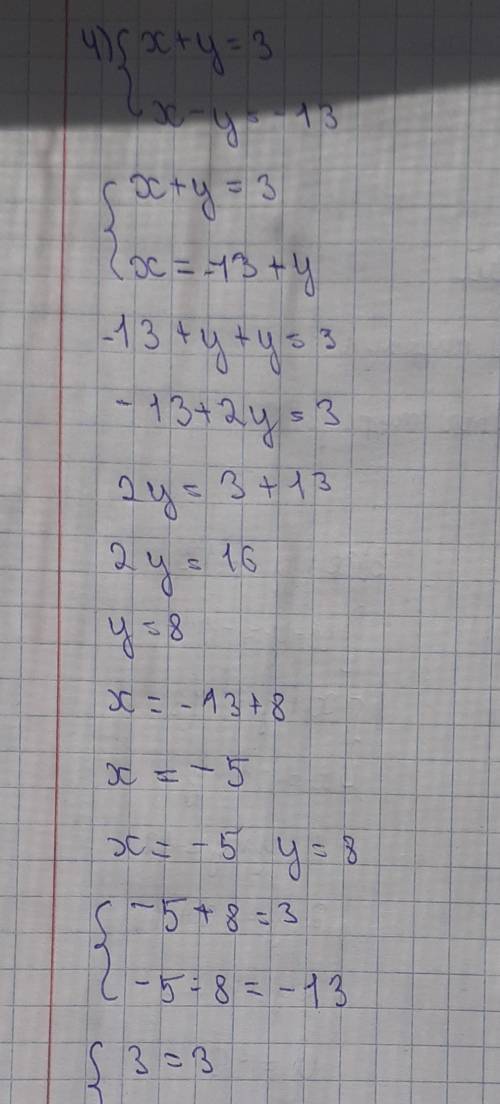 4) { x + y = 3
x - y = -13
{ x + y = 3
x = -13 + y
-13 + y + y = 3
-13 + 2y = 3
2y = 3 + 13
2y = 16
y = 8
x = -13 + 8
x = -5
x = -5 y = 8
{ -5 + 8 = 3
-5 - 8 = -13
{ 3 = 3